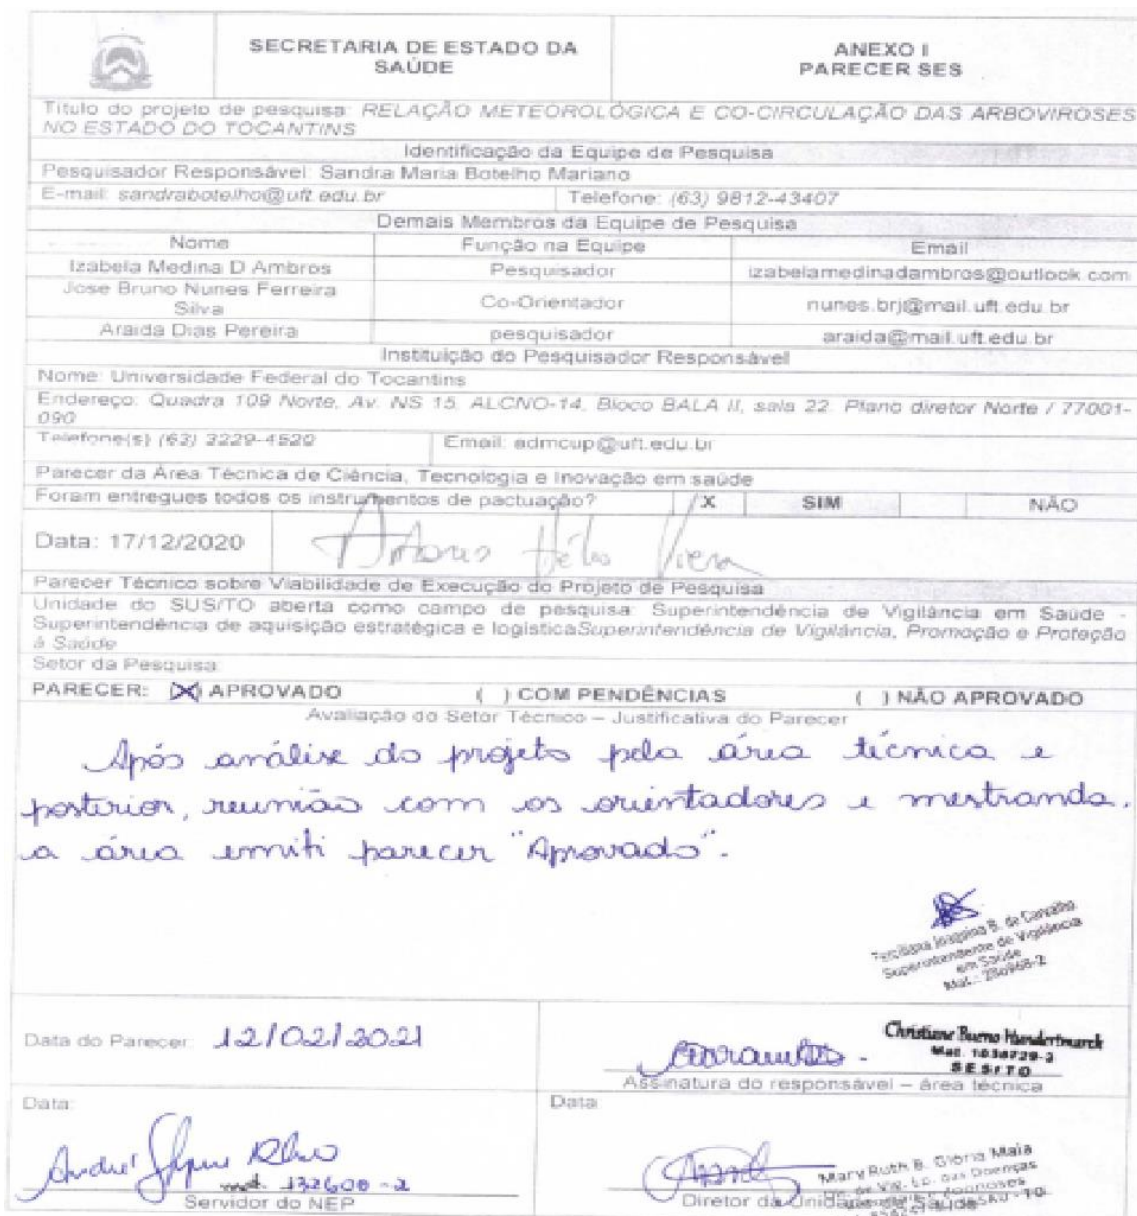 SECRETARIA DE ESTADO DA
SAÚDE
ANEXO I
PARECER SES
Título do projeto de pesquisa: RELAÇÃO METEOROLÓGICA E CO-CIRCULAÇÃO DAS ARBOVIROSES
NO ESTADO DO TOCANTINS
Identificação da Equipe de Pesquisa
Pesquisador Responsável: Sandra Maria Botelho Mariano
E-mail: sandrabotelho@uft.edu.br Telefone: (63) 9812-43407
Demais Membros da Equipe de Pesquisa
Nome Função na Equipe Email
Izabela Medina D Ambros Pesquisador izabelamedinadambros@outlook.com
Jose Bruno Nunes Ferreira
Silva Co-Orientador nunes.brj@mail.uft.edu.br
Araida Dias Pereira pesquisador araida@mail.uft.edu.br
Instituição do Pesquisador Responsável
Nome: Universidade Federal do Tocantins
Endereço: Quadra 109 Norte, Av. NS 15, ALCNO-14, Bloco BALA II, sala 22. Plano diretor Norte / 77001-
090
Telefone(s) (63) 3229-4520 Email: admcup@uft.edu.br
Parecer da Área Técnica de Ciência, Tecnologia e Inovação em saúde
Foram entregues todos os instrumentos de pactuação? X SIM NÃO
Data: 17/12/2020
Parecer Técnico sobre Viabilidade de Execução do Projeto de Pesquisa
Unidade do SUS/TO aberta como campo de pesquisa: Superintendência de Vigilância em Saúde -
Superintendência de aquisição estratégica e logísticaSuperintendência de Vigilância, Promoção e Proteção
à Saúde
Setor da Pesquisa:
PARECER: (X) APROVADO ( ) COM PENDÊNCIAS ( ) NÃO APROVADO
Avaliação do Setor Técnico – Justificativa do Parecer
Após análise do projeto pela área técnica e
posterior, reunião com os orientadores e mestranda,
a área emiti parecer "Aprovado".
B. de Carvalho
Superintendente de Vigilância
em Saúde
Data do Parecer: 12/02/2021
Christiane Bueno Hundertmarck
Mat. 1036729-2
SES/TO
Assinatura do responsável – área técnica
Data: Data:
mat. 132600-2
Servidor do NEP
Mary Ruth B. Glória Maia
Diretor da Unidade de Saúde